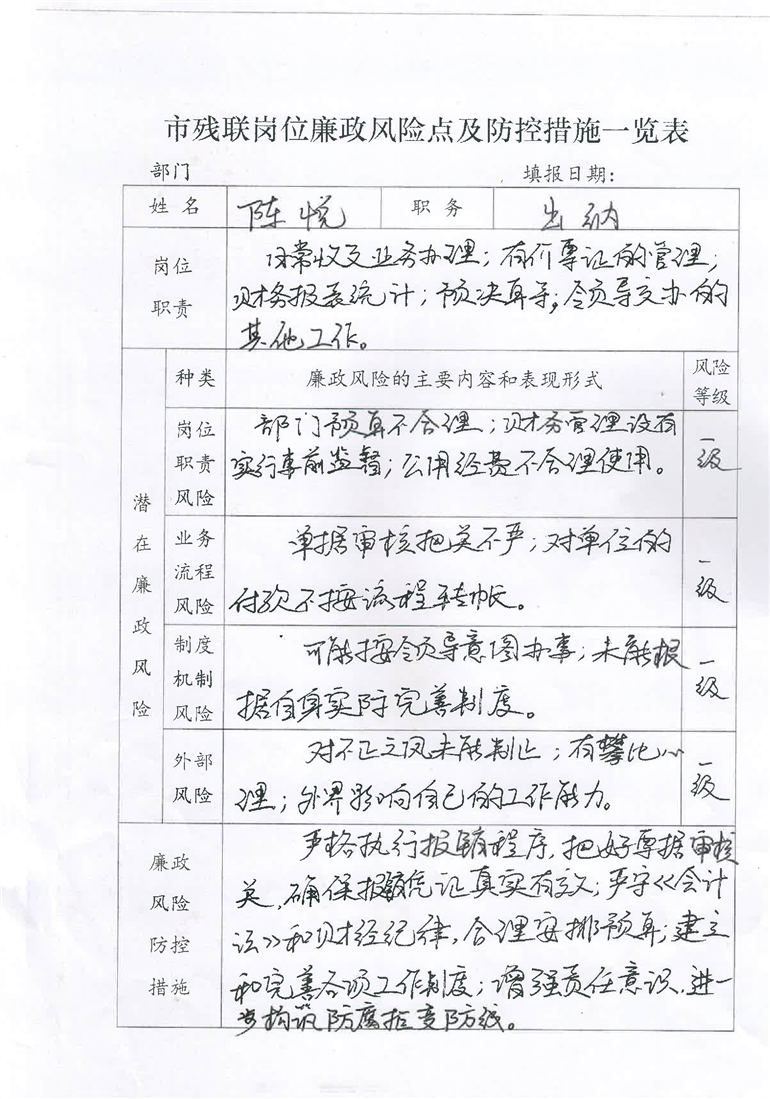 市残联岗位廉政风险点及防控措施一览表
部门 填报日期：
姓名 陈悦 职务 出纳
岗位
职责
日常收支业务办理；有价票证的管理；
财务报表统计；预决算等；领导交办的
其他工作。
潜在廉政风险
种类 廉政风险的主要内容和表现形式 风险等级
岗位
职责
风险
部门预算不合理；财务管理没有
实行事前监督；公用经费不合理使用。
一级
业务
流程
风险
单据审核把关不严；对单位的
付款不按流程转帐。
一级
制度
机制
风险
可能按领导意图办事；未能根
据自身实际完善制度。
一级
外部
风险
对不正之风未能制止；有攀比心
理；外界影响自己的工作能力。
一级
廉政
风险
防控
措施
严格执行报账程序，把好票据审核
关，确保报账凭证真实有效；严守《会计
法》和财经纪律，合理安排预算；建立
和完善各项工作制度；增强责任意识，进一
步构筑防腐拒变防线。